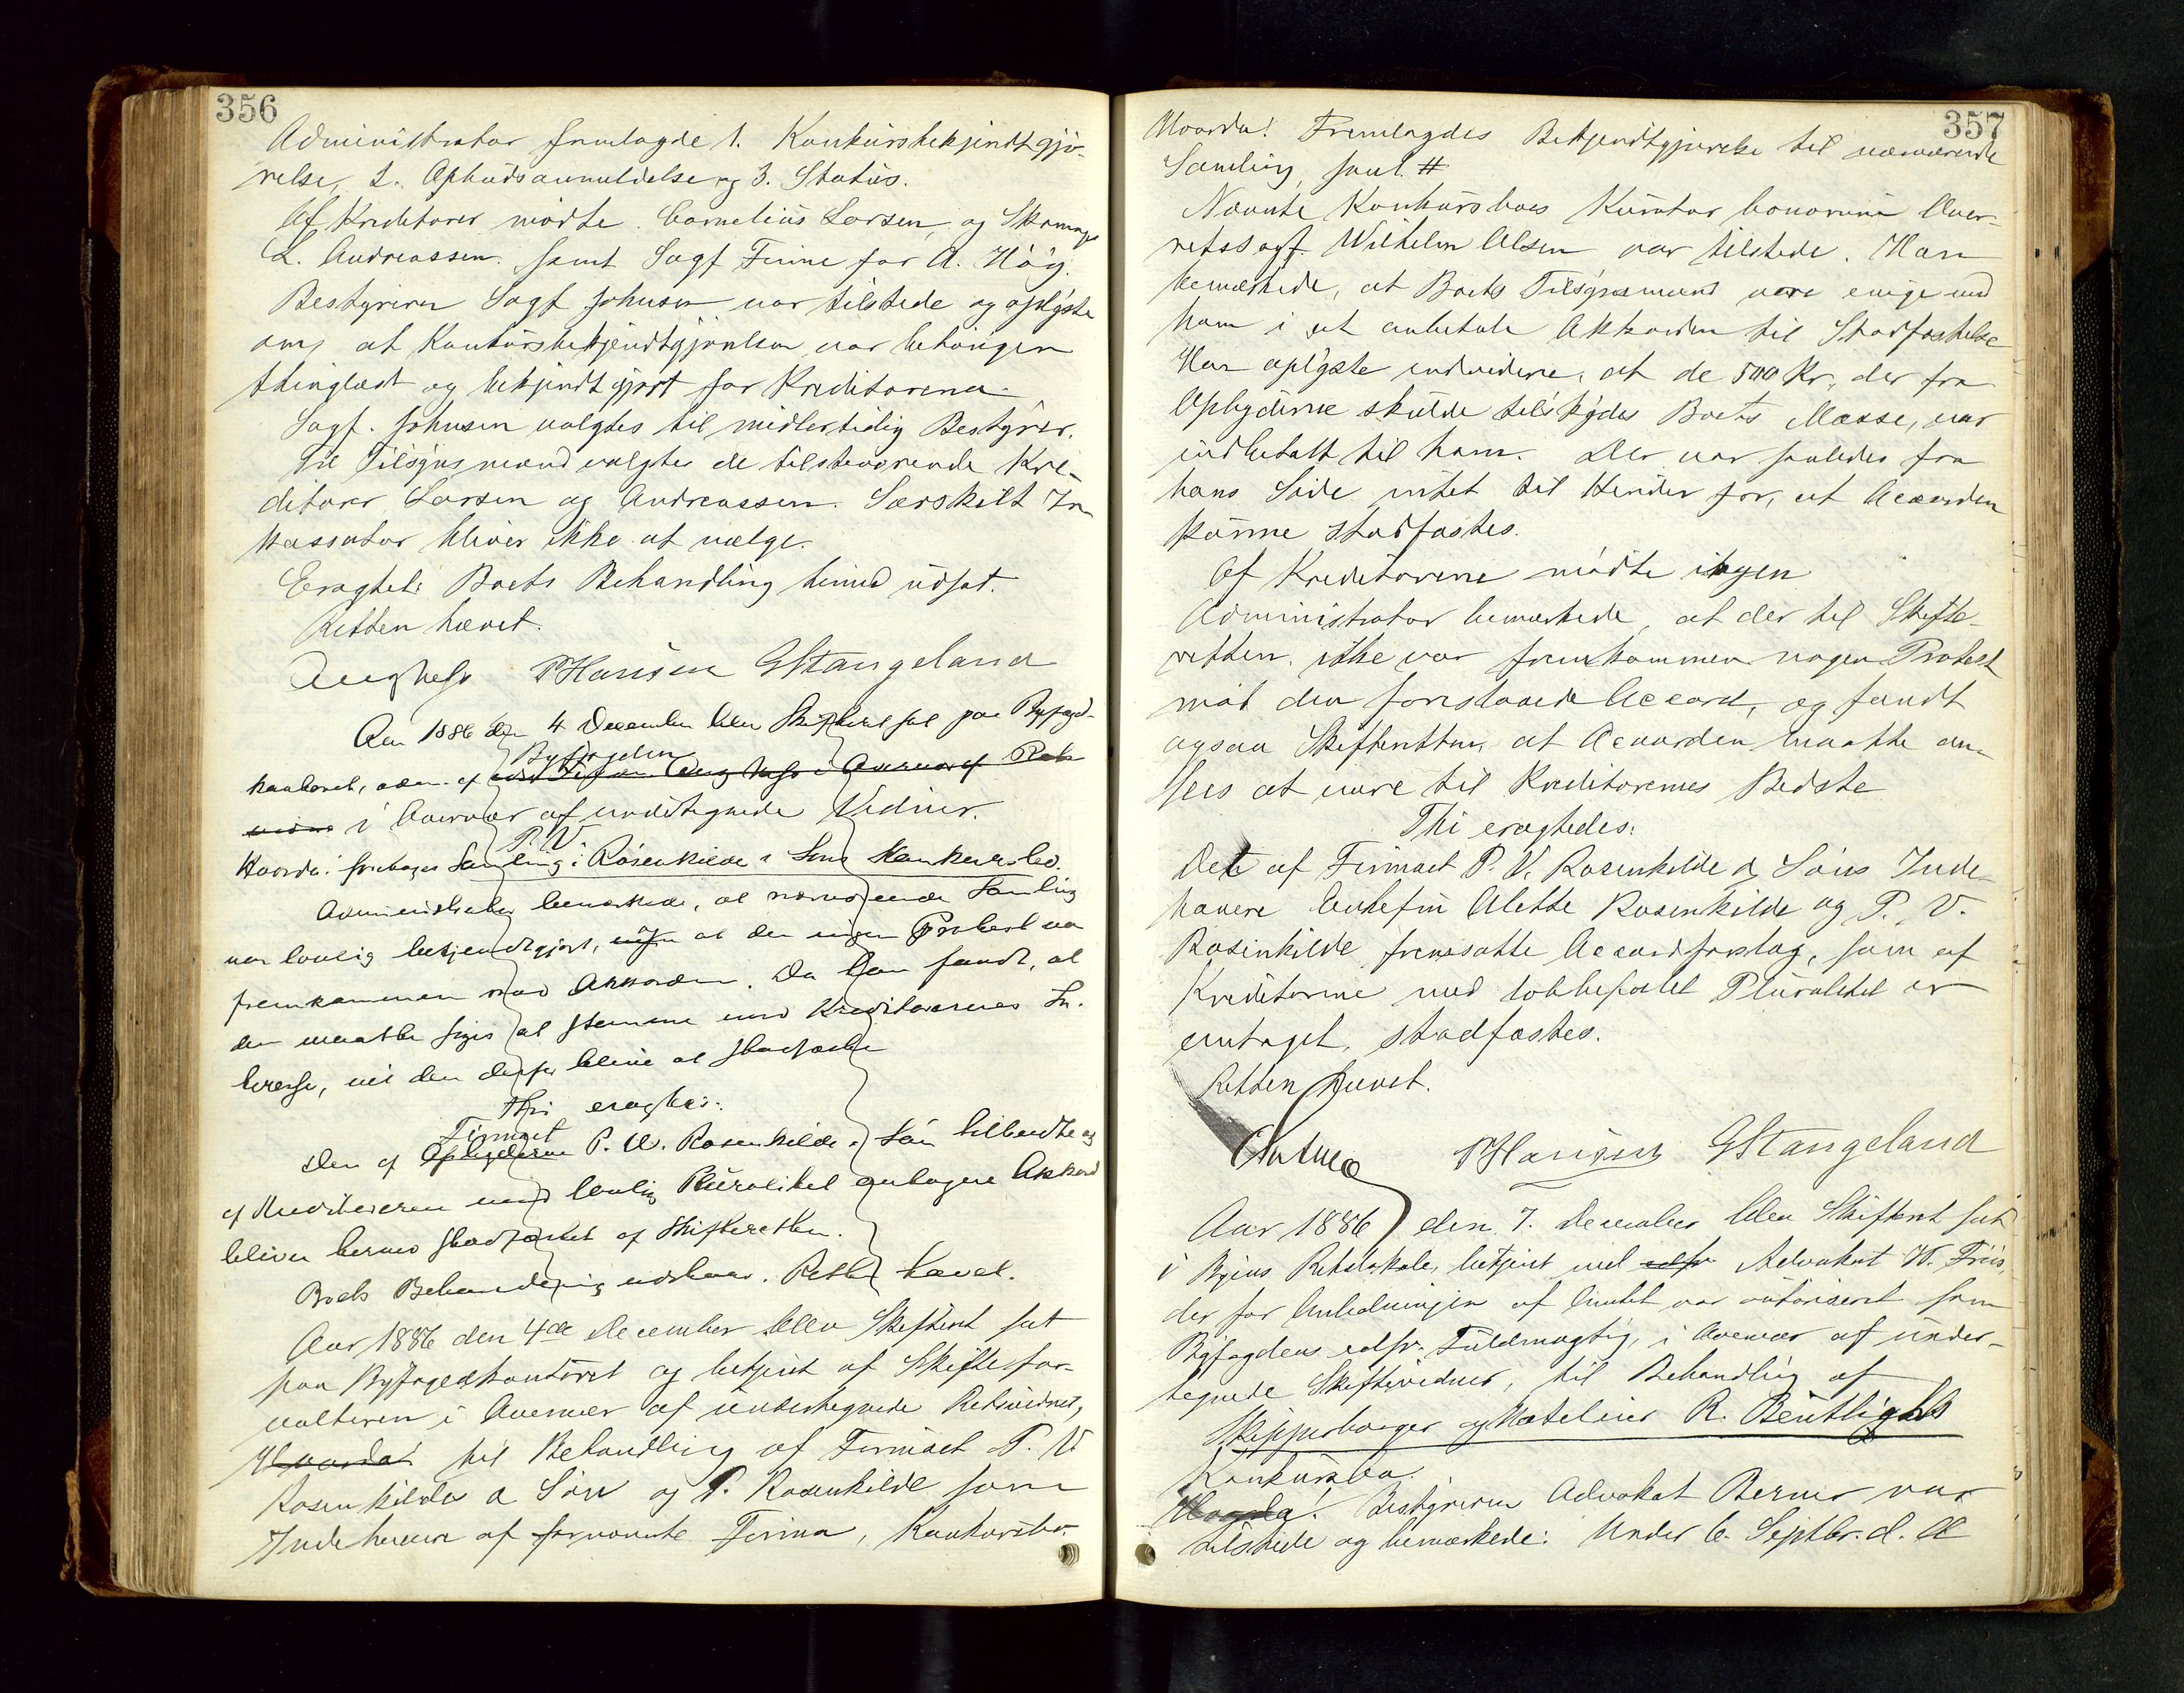 356
Administrator fremlagde 1. Konkursbekjendtgjø-
relse, 2. Opbudsanmeldelse og 3. Status.
Af Kreditorer mødte Cornelius Larsen, og Skomager
L. Andreassen. samt Sagf Finne for A. Høg.
Bestyreren Sagf Johnsen var tilstede og oplyste
om, at Konkursbekjendtgjørelsen var behørigen
thinglæst og bekjendtgjort for Kreditorerne.
Sagf. Johnsen valgtes til midlertidig Bestyrer.
Til Tilsynsmænd valgtes de tilstedeværende Kre-
ditorer Larsen og Andreassen. Særskilt In-
kassator bliver ikke at vælge.
Eragtet: Boets Behandling herved udsat.
Retten hævet.
PHansen GStangeland
Aar 1886 den 4 December blev Skifteret sat paa Byfogd-
Byfogden
kontoret, adm. af
i Overvær af undertegnede Vidner.
P. V.
Hvorda: foretages Samling i Rosenkilde & Søns Konkursbo.
Administrator bemærkede, at nærværende Samling
var lovlig bekjendtgjort, at der ingen Protest var
fremkommen mod Akkorden. Da han fandt, at
den maatte siges at stemme med Kreditorernes In-
teresse, vil den derfor blive at stadfæste
Thi eragtes:
Firmaet
Den af Opbyderne P. W. Rosenkilde & Søn tilbudte og
af Kreditorerne med lovlig Pluralitet antagne Akkord
bliver herved stadfæstet af Skifteretten.
Boets Behandling udsættes. Retten hævet.
Aar 1886 den 4de December blev Skifteret sat
paa Byfogedkontoret og betjent af Skiftefor-
valteren i Overvær af undertegnede Retsvidner,
Hvorda! til Behandling af Firmaet P. V
Rosenkilde & Søn og P. Rosenkilde som
Indehaver af fornævnte Firma, Konkursbo.
357
Hvorda! Fremlagdes Bekjendtgjørelse til nærværende
Samling, saal. #
Nævnte Konkursboes Kurator bonorum Over-
retssagf. Wilhelm Olsen var tilstede. Han
bemærkede, at Boets Tilsynsmænd vare enige med
ham i at anbefale Akkorden til Stadfæstelse
Han oplyste endvidere, at de 500 Kr, der fra
Opbyderne skulde tilskydes Boets Masse, var
indbetalt til ham. Der var saaledes fra
hans Side intet til Hinder for, at Accorden
kunne stadfæstes.
Af Kreditorerne mødte ingen
Administrator bemærkede, at der til Skifte-
retten ikke var fremkommen nogen Protest
mod den foreslaaede Accord, og fandt
ogsaa Skifteretten, at Accorden maatte an-
sees at være til Kreditorernes Bedste
Thi eragtedes:
Det af Firmaet P. V. Rosenkilde & Søns Inde-
havere Enkefru Alette Rosenkilde og P. V.
Rosenkilde fremsatte Accordforslag, som af
Kreditorerne med lovbefalet Pluralitet er
antaget, stadfæstes.
Retten hævet.
PHansen GStangeland
Aar 1886 den 7. December blev Skifteret sat
i Byens Retslokale, betjent ved Advokat W. Friis,
der for Anledningen af Amtet var autoriseret som
Byfogdens edsv. Fuldmægtig, i Overvær af under-
tegnede Skiftevidner, til Behandling af
Skipperborger og Høteleier R. Bentlights
Konkursbo.
Hvorda! Bestyreren Advokat Berner var
tilstede og bemærkede: Under 6. Septbr. d. A